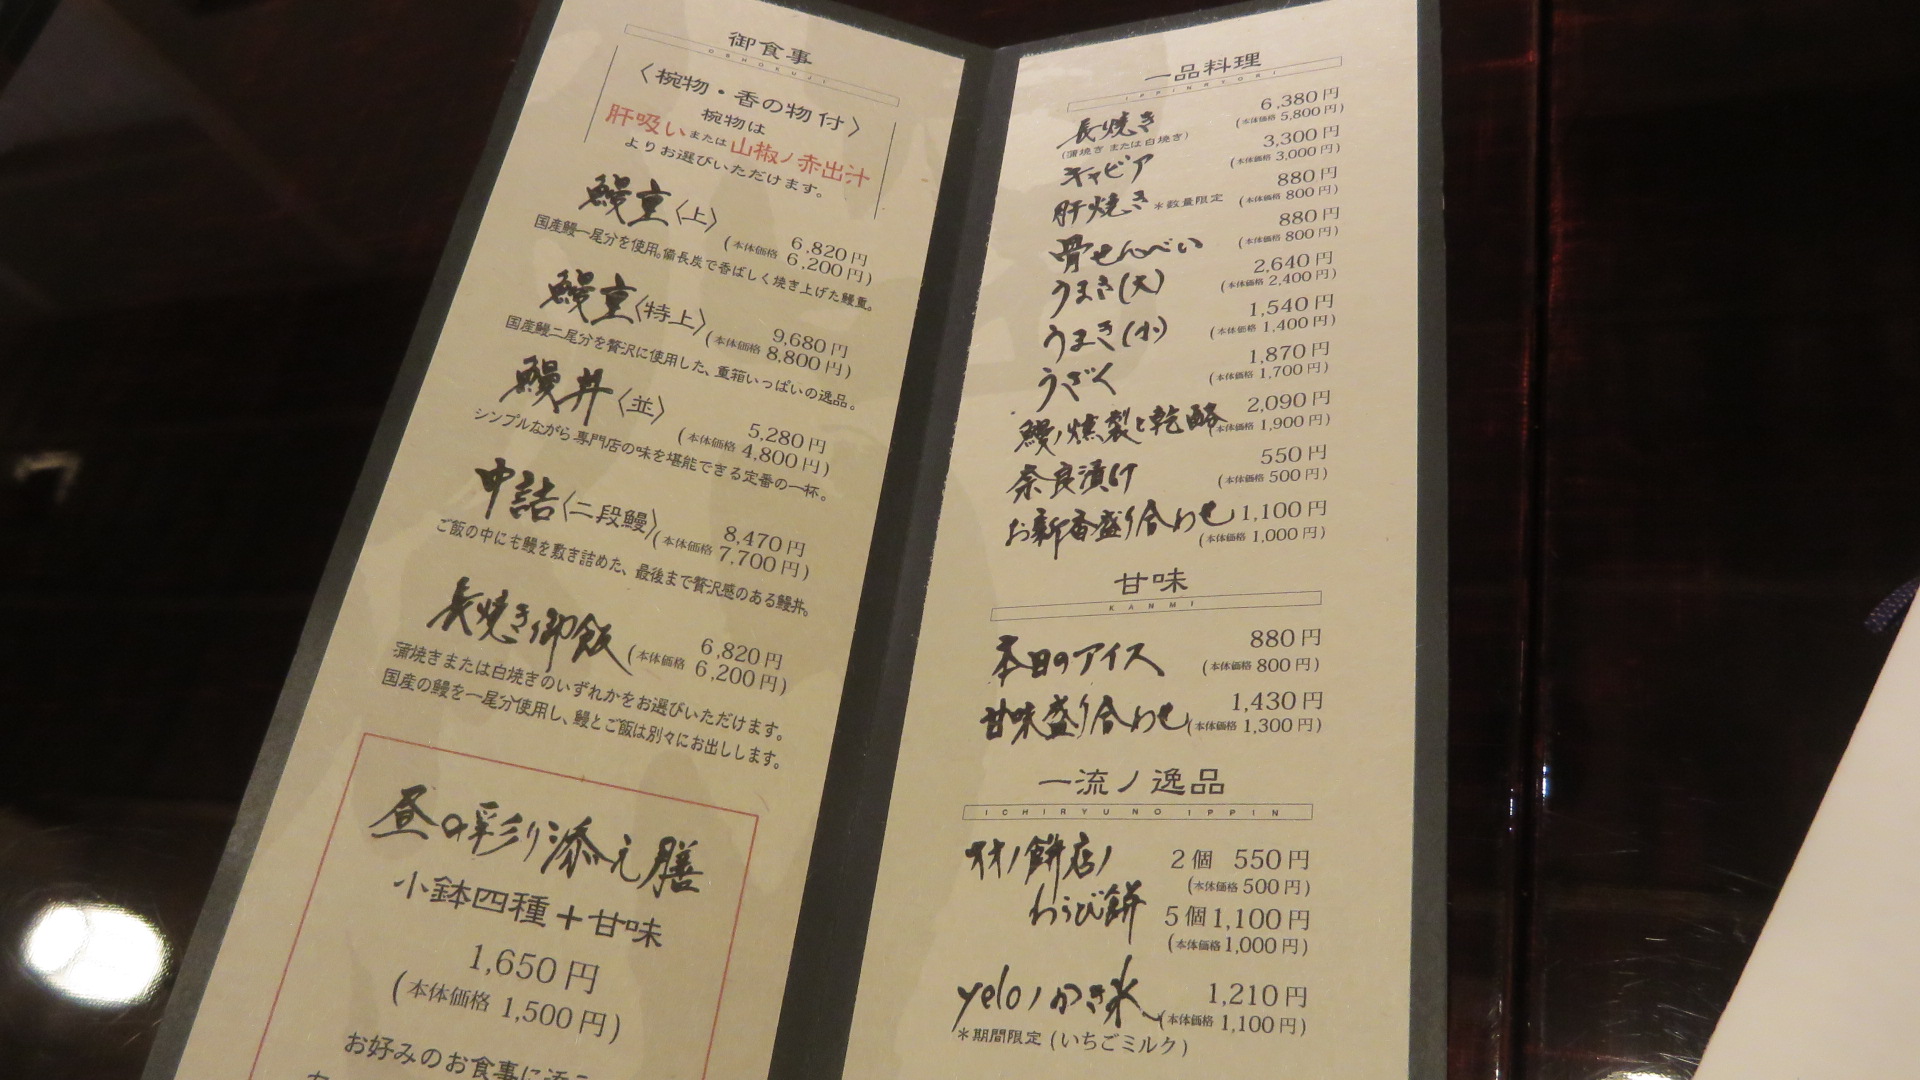 御食事
OSHOKUJI
〈椀物・香の物付〉
椀物は
肝吸いまたは山椒ノ赤出汁
よりお選びいただけます。
鰻重〈上〉 6,820円
(本体価格 6,200円)
国産鰻一尾分を使用。備長炭で香ばしく焼き上げた鰻重。
鰻重〈特上〉 9,680円
(本体価格 8,800円)
国産鰻二尾分を贅沢に使用した、重箱いっぱいの逸品。
鰻丼〈並〉 5,280円
(本体価格 4,800円)
シンプルながら専門店の味を堪能できる定番の一杯。
中詰〈二段鰻〉 8,470円
(本体価格 7,700円)
ご飯の中にも鰻を敷き詰めた、最後まで贅沢感のある鰻丼。
長焼き御飯 6,820円
(本体価格 6,200円)
蒲焼きまたは白焼きのいずれかをお選びいただけます。
国産の鰻を一尾分使用し、鰻とご飯は別々にお出しします。
昼の彩り添え膳
小鉢四種+甘味
1,650円
(本体価格 1,500円)
お好みのお食事に添え
一品料理
IPPINRYORI
長焼き 6,380円
(蒲焼き または 白焼き) (本体価格 5,800円)
キャビア 3,300円
(本体価格 3,000円)
肝焼き *数量限定 880円
(本体価格 800円)
骨せんべい 880円
(本体価格 800円)
うまき(大) 2,640円
(本体価格 2,400円)
うまき(小) 1,540円
(本体価格 1,400円)
うざく 1,870円
(本体価格 1,700円)
鰻ノ燻製と乾酪 2,090円
(本体価格 1,900円)
奈良漬け 550円
(本体価格 500円)
お新香盛り合わせ 1,100円
(本体価格 1,000円)
甘味
KANMI
本日のアイス 880円
(本体価格 800円)
甘味盛り合わせ 1,430円
(本体価格 1,300円)
一流ノ逸品
ICHIRYU NO IPPIN
オオノ餅店ノ 2個 550円
(本体価格 500円)
わらび餅 5個 1,100円
(本体価格 1,000円)
yeloノかき氷 1,210円
(本体価格 1,100円)
*期間限定 (いちごミルク)